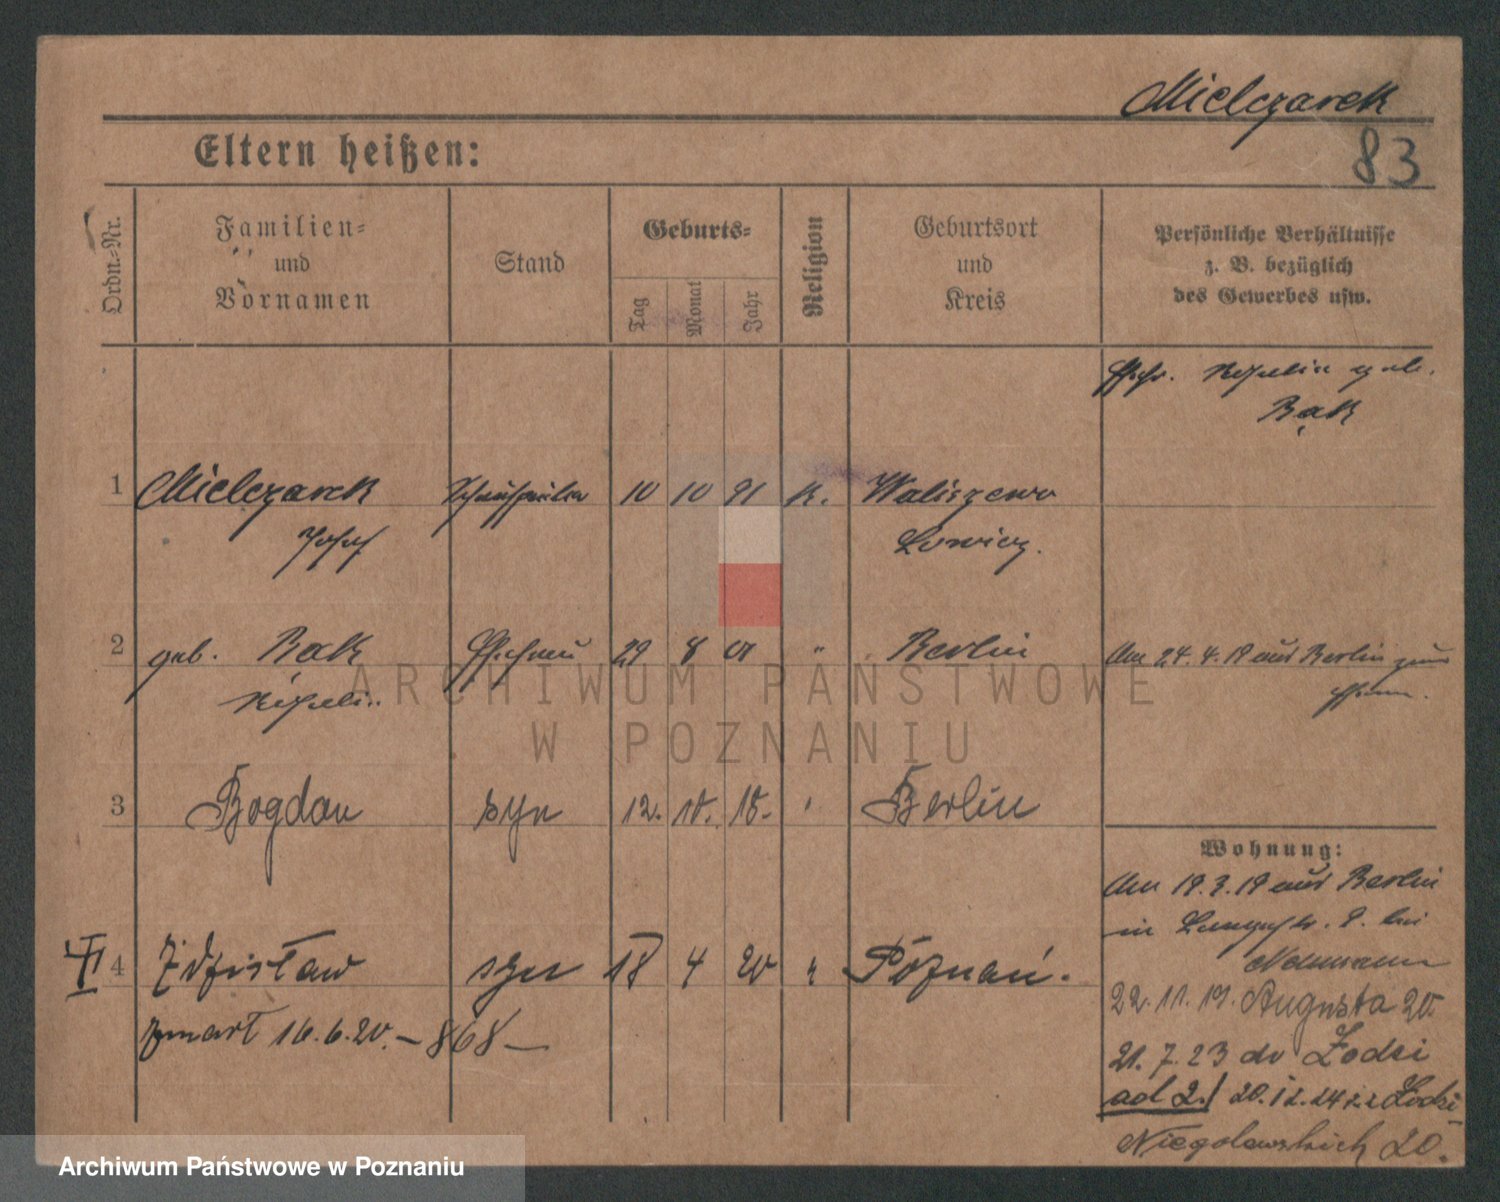 Mielczarek
83
Eltern heißen:
Ordn.-Nr.
Familien-
und
Vornamen
Stand
Geburts-
Tag
Monat
Jahr
Religion
Geburtsort
und
Kreis
Persönliche Verhältnisse
z. B. bezüglich
des Gewerbes usw.
geb.
Bąk
1 Mielczarek Schauspieler 10 10 91 K. Waliszewo
Josef Lowicz.
2 geb. Bąk Ehefrau 29 8 01 " Berlin Am 24. 4. 19 aus Berlin zum
3 Bogdan syn 12. 10. 18. " Berlin
Wohnung:
Am 19. 3. 19 aus Berlin
in 8. bei
Neumann
4 Zdzisław syn 18 4 20 " Poznań.
22. 11. 19. Augusta 20.
zmarł 16. 6. 20. – 868 –
21. 7. 23 do Łodzi
ad 2./ 20. 12. 24 z Łodzi
Niegolewskich 20.
ARCHIWUM PAŃSTWOWE
W POZNANIU
Archiwum Państwowe w Poznaniu